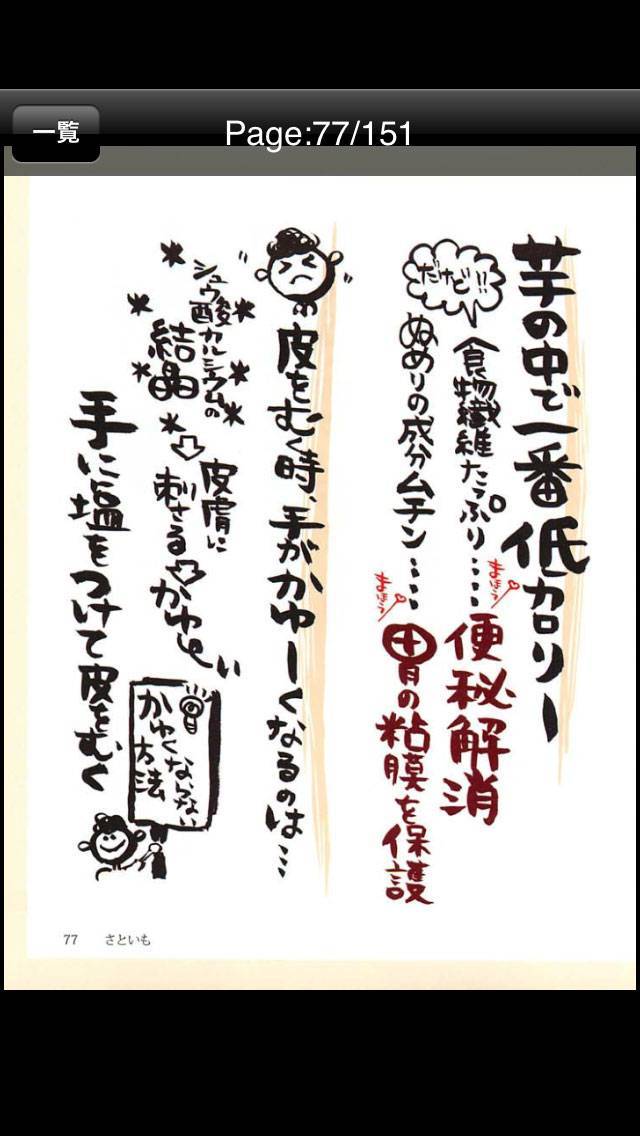 一覧
Page:77/151
芋の中で一番低カロリー
だけど!!
食物繊維たっぷり……
まほう
便秘解消
ぬめりの成分ムチン……
まほう
胃の粘膜を保護
皮をむく時、手がかゆーくなるのは…
シュウ酸カルシウムの
結晶
皮膚に
刺さる
かゆーい
かゆくならない
方法
手に塩をつけて皮をむく
77 さといも